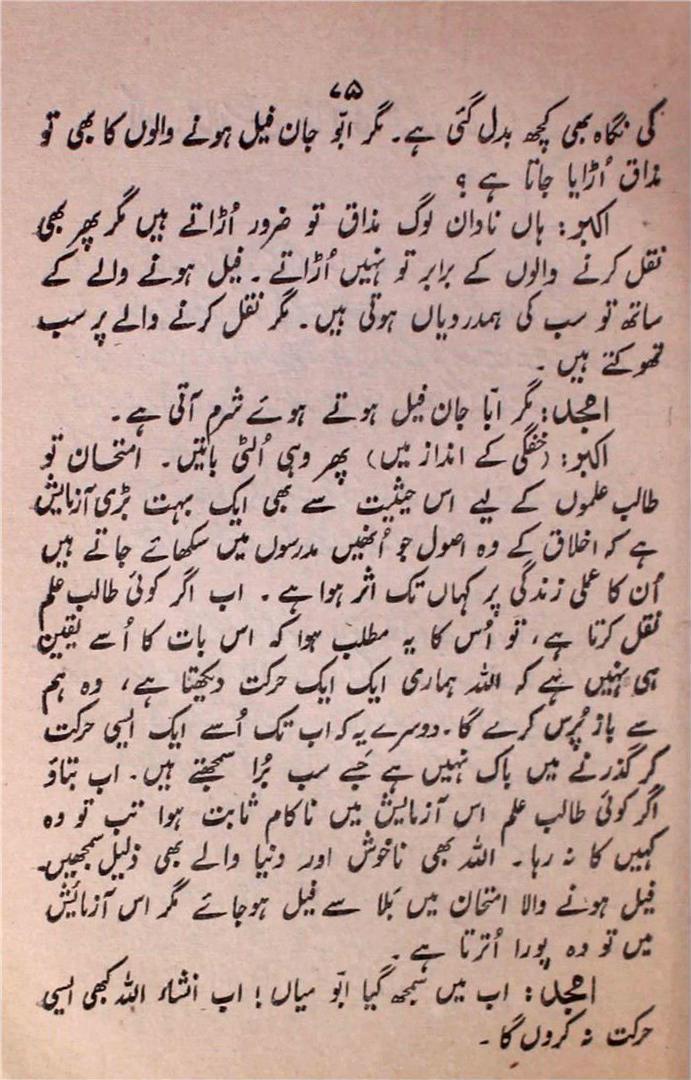 ۷۵
کی نگاہ بھی کچھ بدل گئی ہے۔ مگر ابّو جان فیل ہونے والوں کا بھی تو
مذاق اُڑایا جاتا ہے ؟
اکبر: ہاں نادان لوگ مذاق تو ضرور اُڑاتے ہیں مگر پھر بھی
نقل کرنے والوں کے برابر تو نہیں اُڑاتے ۔ فیل ہونے والے کے
ساتھ تو سب کی ہمدردیاں ہوتی ہیں۔ مگر نقل کرنے والے پر سب
تھوکتے ہیں ۔
امجد: مگر ابّا جان فیل ہوتے ہوئے شرم آتی ہے ۔
اکبر: (خفگی کے انداز میں) پھر وہی اُلٹی باتیں۔ امتحان تو
طالب علموں کے لیے اس حیثیت سے بھی ایک بہت بڑی آزمایش
ہے کہ اخلاق کے وہ اصول جو اُنھیں مدرسوں میں سکھائے جاتے ہیں
اُن کا عملی زندگی پر کہاں تک اثر ہوا ہے ۔ اب اگر کوئی طالب علم
نقل کرتا ہے، تو اُس کا یہ مطلب ہوا کہ اس بات کا اُسے یقین
ہی نہیں ہے کہ اللہ ہماری ایک ایک حرکت دیکھتا ہے، وہ ہم
سے باز پُرس کرے گا۔ دوسرے یہ کہ اب تک اُسے ایک ایسی حرکت
کر گذرنے میں باک نہیں ہے جسے سب بُرا سمجھتے ہیں۔ اب بتاؤ
اگر کوئی طالب علم اس آزمایش میں ناکام ثابت ہوا تب تو وہ
کہیں کا نہ رہا۔ اللہ بھی ناخوش اور دنیا والے بھی ذلیل سمجھیں۔
فیل ہونے والا امتحان میں بَلا سے فیل ہوجائے مگر اس آزمائیش
میں تو وہ پورا اُترتا ہے ۔
امجد: اب میں سمجھ گیا ابّو میاں! اب انشاء اللہ کبھی ایسی
حرکت نہ کروں گا ۔